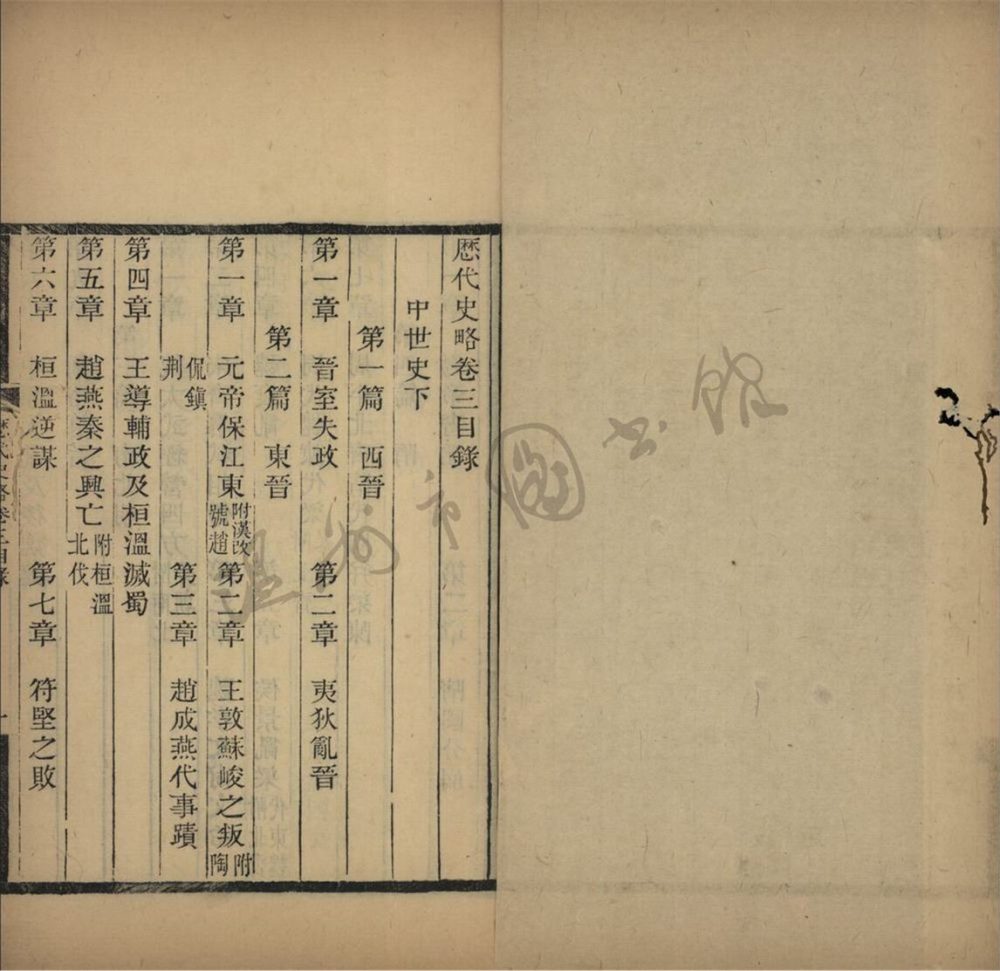 歷代史略卷三目錄
中世史下
第一篇 西晉
第一章 晉室失政 第二章 夷狄亂晉
第二篇 東晉
第一章 元帝保江東附漢改號趙 第二章 王敦蘇峻之叛附陶
侃鎮荆 第三章 趙成燕代事蹟
第四章 王導輔政及桓溫滅蜀
第五章 趙燕秦之興亡附桓溫北伐
第六章 桓溫逆謀 第七章 符堅之敗
歷代史略卷三目錄
一
市圖書館